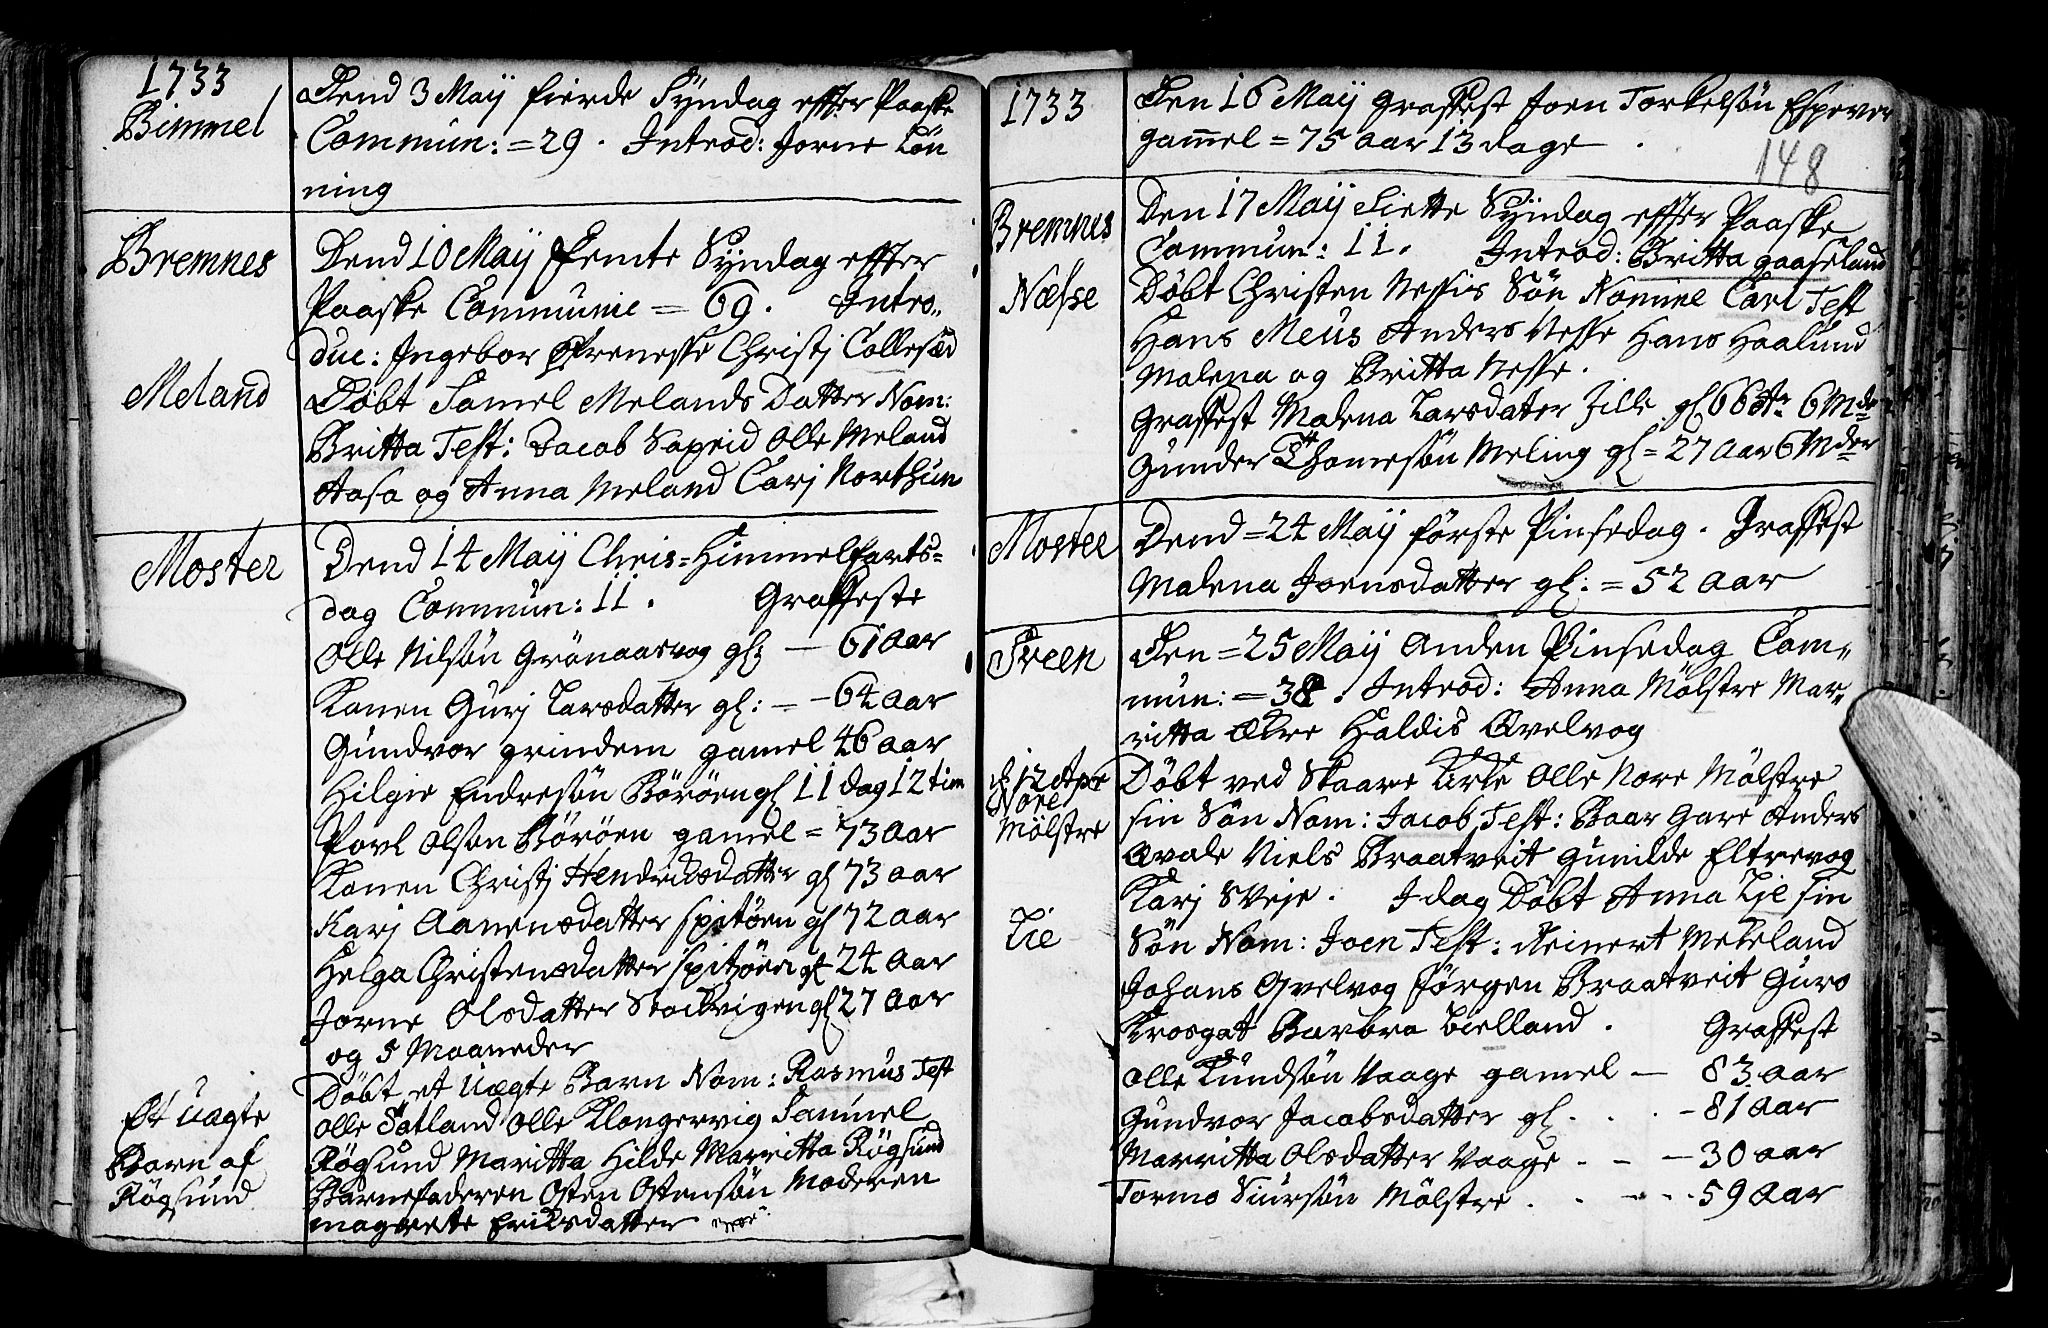 1733
Bimmel
Dend 3 Maÿ fierde Syndag effter Paaske
Commun: = 29. Introd: Jorne Løn
ning
Bremnes
Dend 10 Maÿ Femte Syndag effter
Paaske Communic = 69. Intro..
duc: Ingebor Christj Collesæd
Meland
Døbt Samel Melands Datter Nom:
Britta Test: Jacob Saxeid Olle Meland
Aasa og Anna Meland Carj Northun
Moster
Dend 14 Maÿ Chris=Himmelfarts=
dag Commun: 11. Graffeste
Olle Nilsøn Grønaasvog gl: — 61 Aar
Konen Gurj Larsdatter gl: — 64 Aar
Gundvor grindem gamel 46 Aar
Hilgie Endresøn Børøen gl 11 dag 12 tim
Povl Olsøn Børøen gamel = 73 Aar
Konen Christj Hendricksdatter gl 73 aar
Karj Aanensdatter spitøen gl 72 aar
Helga Christensdatter spitzøen gl 24 Aar
Jorne Olsdatter Stockvigen gl 27 Aar
og 5 Maaneder
Et uægte
Barn af
Røgsund
Døbt et Uægte Barn Nom: Rasmus Test
Olle Sætland Olle Klongervig Samuel
Røgsund Maritta Hilde Marritta Røgsund
Barnefaderen Osten Ostensøn Moderen
magrete Eriksdatter
1733
Den 16 Maÿ graffest Joen Torkelsøn Espever
gam̅el = 75 Aar 13 dage
148
Bremnes
Den 17 Maÿ Siette Syndag effter Paaske
Commun: 11. Introd: Britta gaaseland
Næsse
Døbt Christen Nessis Søn Nomine Carl Test
Hans Meus Anders Nesse Hans Haalund
Malena og Britta Nesse.
Graffest Malena Larsdater Zille gl 66 Ar 6 Mdr
Gunder Thomesøn Meling gl = 27 Aar 6 Mder
Moster
Dend = 24 Maÿ første Pinsedag. Graffest
Malena Joensdatter gl: = 52 Aar
Sveen
Den = 25 Maÿ Anden Pinsedag Com..
mun: = 38. Introd: Anna Mølstre Mar..
ritta Økre Haldis Qvelvog
d 12 Apr
Nore
Mølstre
Døbt ved Skaare Kirke Olle Nore Mølstre
sin Søn Nom: Jacob, Test: Baar Gare Anders
Qvale Niels Braatveit Gunilde Eltrevog
Karj Sveje. I dag Døbt Anna Lie sin
Lie
Søn Nom: Joen Test: Reinert Mekeland
Johans Qvelvog Jørgen Braatveit Guro
Krosgat Barbra Bielland. Graffest
Olle Kundsøn Vaage gamel — 83 aar
Gundvor Jacobsdatter gl. . . - 81 Aar
Marritta Olsdatter Vaage . - - 30 aar
Tormo Siursøn Mølstre . . - . . 59 Aar